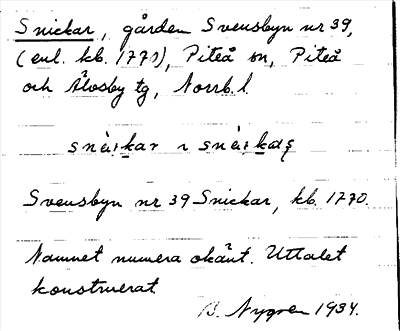 Snickar, gården Svensbyn nr 39,
(enl. kb. 1770), Piteå sn, Piteå
och Älvsby tg, Norrb. l.
Svensbyn nr 39 Snickar, kb. 1770.
Namnet numera okänt. Uttalet
konstruerat
B. Nygren 1934.